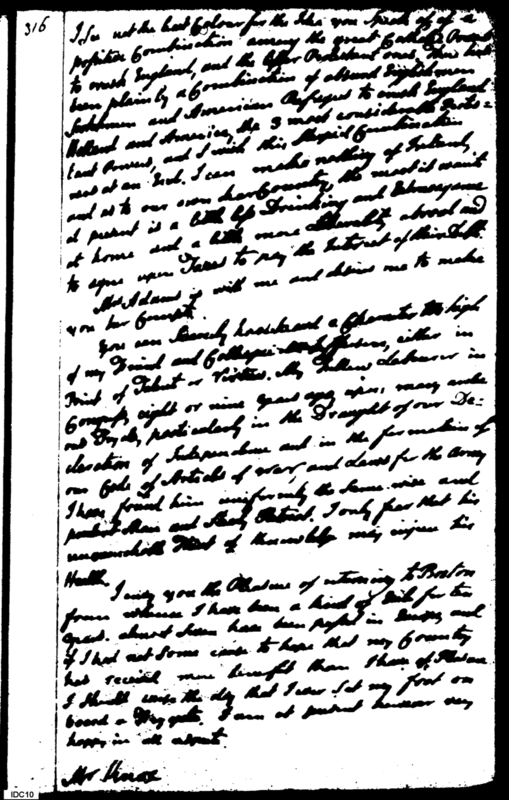 316
I See not the least Colour for the Idea you Speak of, of a
Combination among the great Catholic Powers
to crush England, and the lesser Protestant ones. There has
been plainly a Combination of absurd Englishmen
Scotchmen and American Refugees to crush England
Holland and America, the 3 most considerable Protes=
tant Powers, and I wish this stupid Combination
was at an End. I can make nothing of Ireland,
and as to our own dear Country, the most it wants
at present is a little less Drinking and Extravagance
at home and a little more Liberality abroad and
to agree upon Taxes to pay the Interest of their Debt.
Mrs Adams is with me and desires me to make
you her Compts.
You can Scarcely have heard a Character too high
of my Friend and Colleague Mr Jefferson, either in
Point of Talents or Virtues. My Fellow Labourer in
Congress, eight or nine years ago, upon many arduous
particularly in the Draught of our De-
claration of Independence and in the formation of
our Code of Articles of War, and Laws for the Army
I have found him uniformly the same wise and
prudent Man and Steady Patriot. I only fear that his
unquenchable Thirst of Knowledge may injure his
Health.
I envy you the Pleasure of returning to Boston
from whence I have been a kind of Exile for ten
years. almost Seven have been passed in Europe, and
if I had not Some cause to hope that my Country
has received more benefit than I have of Pleasure
I Should curse the day that I ever Set my foot on
board a Frigate. I am at present however very
happy in all respects.
Mr Knox
IDC10